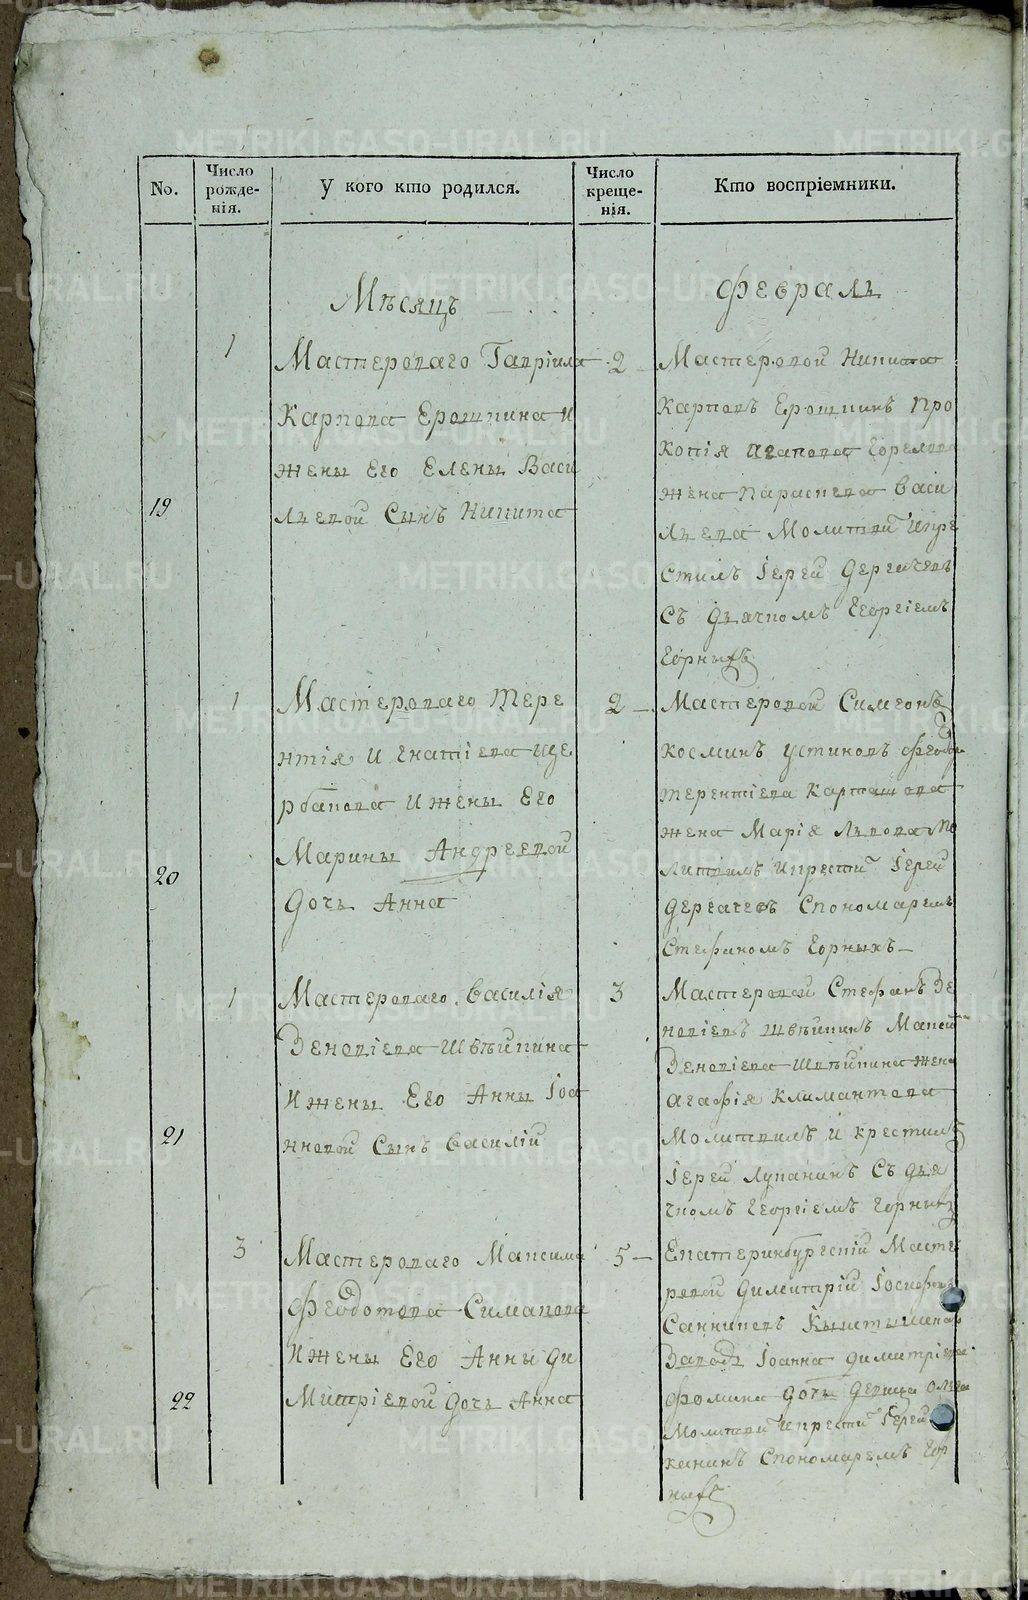 No.
Число рожде- нія.
У кого кто родился.
Число креще- нія.
Кто воспріемники.
Мѣсяцъ
февраль
19
1
Мастероваго Гавріила
Карпова Ерошкина и
жены Его Елены Васи
льевой Сынъ Никита
2
Мастеровой Никита
Карповъ Ерошкинъ Про
копія Агапова Горелова
жена Параскева Васи
льева Молитви икре
стилъ Іерей Дергачевъ
Съ дьячкомъ Георгіемъ
Горныхъ
20
1
Мастероваго Тере
нтія Игнатіева Ще
рбакова и жены Его
Марины Андреевой
Дочь Анна
2
Мастеровой Симеонъ
Косминъ Устиновъ Феодор
Терентіева Карташова
жена Марія Львова Мо
литвилъ икрести Іерей
Дергачевъ Спономаремъ
Стефаномъ Горныхъ
21
1
Мастероваго Василія
Зеновіева Швѣйкина
и жены Его Анны Іоа
нновой Сынъ Василій
3
Мастеровой Стефанъ Зе
новіевъ Швѣйкинъ Макси
Зеновіева Швѣйкина жена
Агафія Климантова
Молитвилъ и крестилъ
Іерей Лупанинъ Съ дья
чкомъ Георгіемъ Горныхъ
22
3
Мастероваго Максима
Феодотова Симакова
и жены Его Анны Ди
митріевой дочь Анна
5
Екатеринбургскій Масте
ровой Димитрій Іосифовъ
Санниковъ Кыштымскаго
Заводъ Іоанна Димитріева
Фомина дочь девица
Молитви икрести Іерей
канинъ Спономаремъ Гор
ныхъ